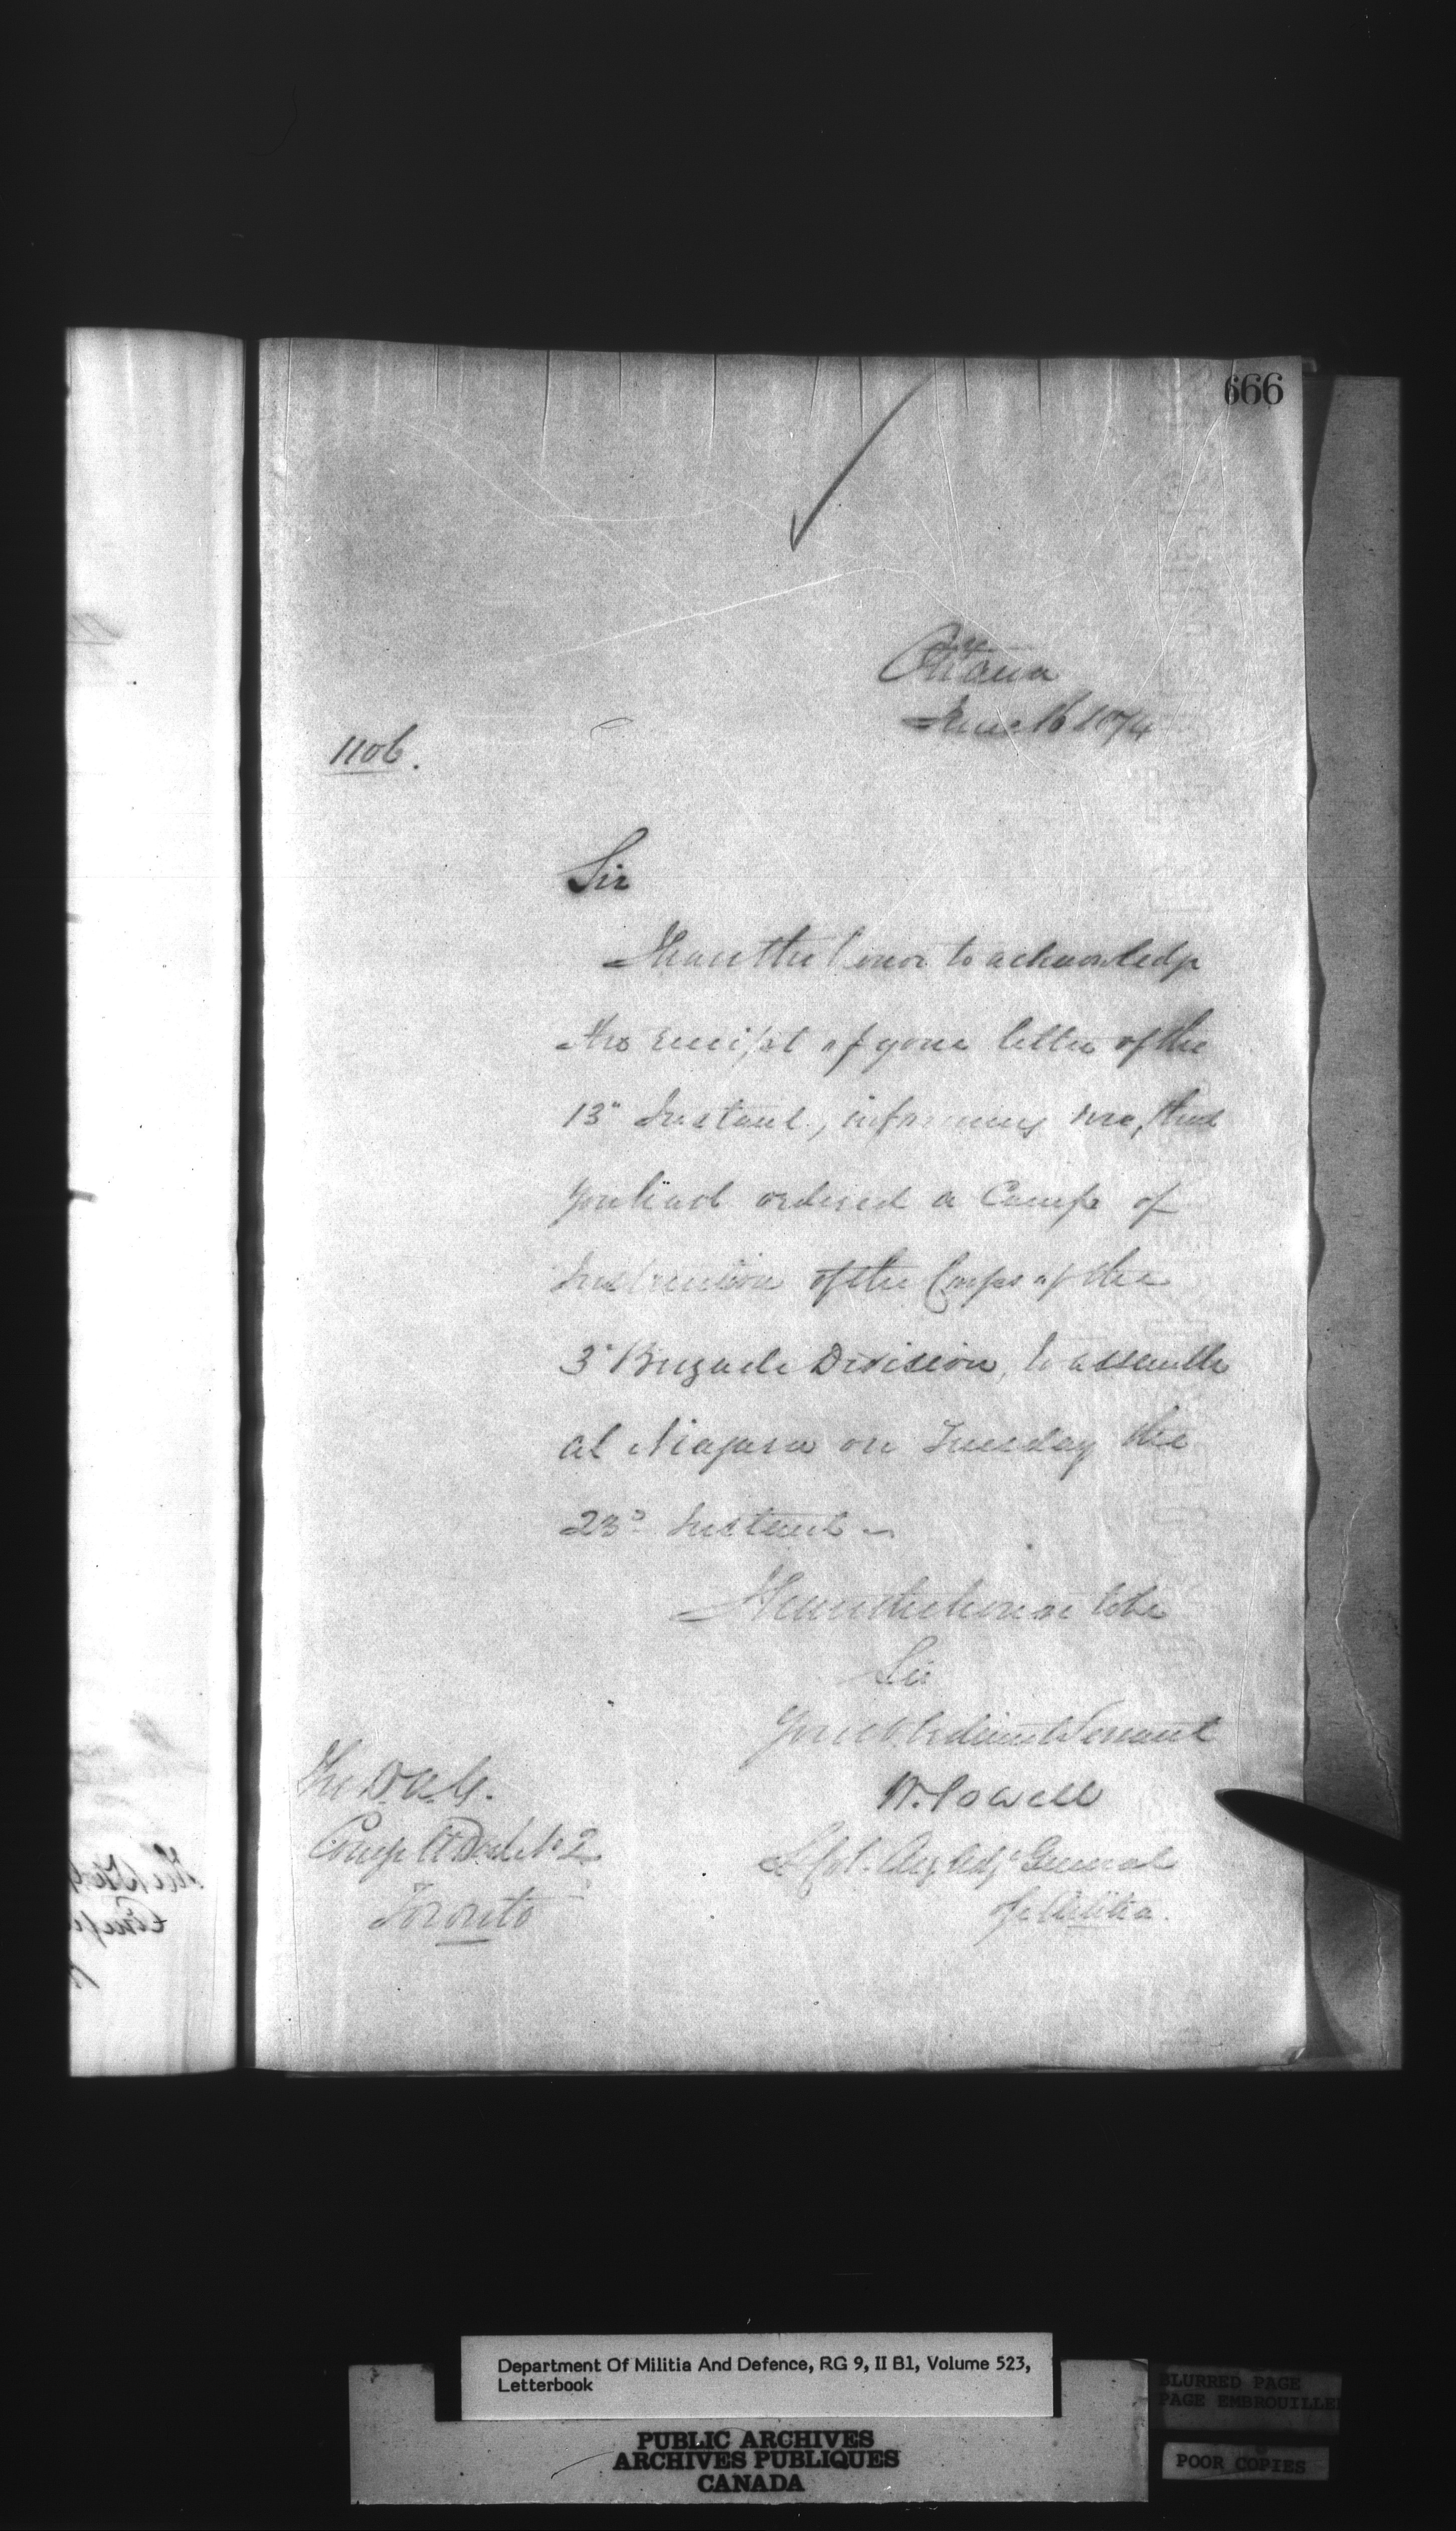 666
Ottawa
June 16 1874
1106.
Sir
I have the honor to acknowledge
the receipt of your letter of the
13" Instant, informing me, that
you had ordered a Camp of
Instruction of the Corps of the
3" Brigade Division, to assemble
at Niagara on Tuesday the
23d Instant
I have the honor to be
Sir
Your obedient Servant
W. Powell
Lt Col. Acg Adjt General
of Militia.
The D.A.G.
Comg No 2
Toronto
Department Of Militia And Defence, RG 9, II B1, Volume 523,
Letterbook
PUBLIC ARCHIVES
ARCHIVES PUBLIQUES
CANADA
BLURRED PAGE
PAGE EMBROUILLEE
POOR COPIES